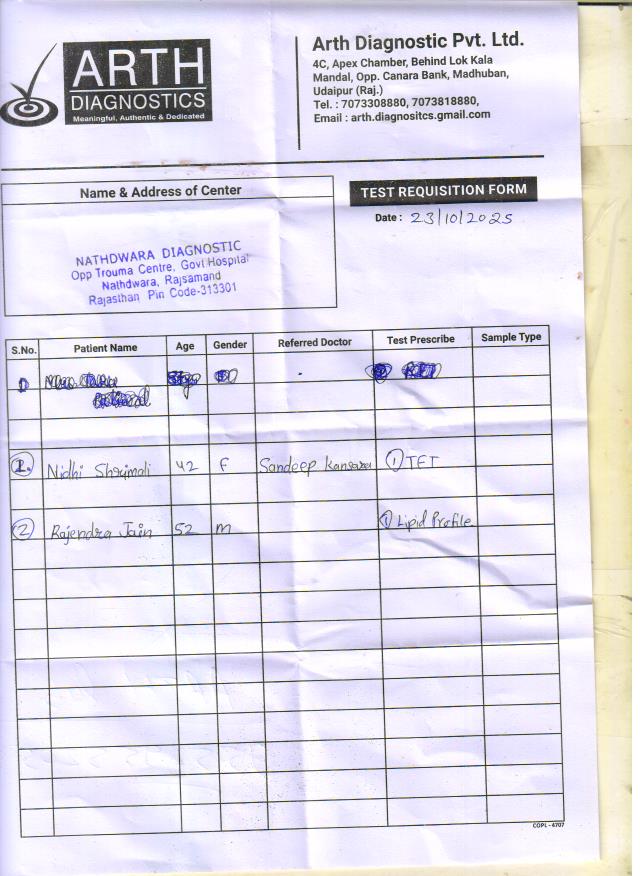 ARTH
DIAGNOSTICS
Meaningful, Authentic & Dedicated
Arth Diagnostic Pvt. Ltd.
4C, Apex Chamber, Behind Lok Kala
Mandal, Opp. Canara Bank, Madhuban,
Udaipur (Raj.)
Tel. : 7073308880, 7073818880,
Email : arth.diagnositcs.gmail.com
Name & Address of Center
NATHDWARA DIAGNOSTIC
Opp Trouma Centre, Govt Hospital
Nathdwara, Rajsamand
Rajasthan Pin Code-313301
TEST REQUISITION FORM
Date : 23/10/2025
S.No. Patient Name Age Gender Referred Doctor Test Prescribe Sample Type
1. Nidhi Shrimali 42 F Sandeep ① TFT
② Rajendra Jain 52 m ① Lipid Profile
COPL - 4707